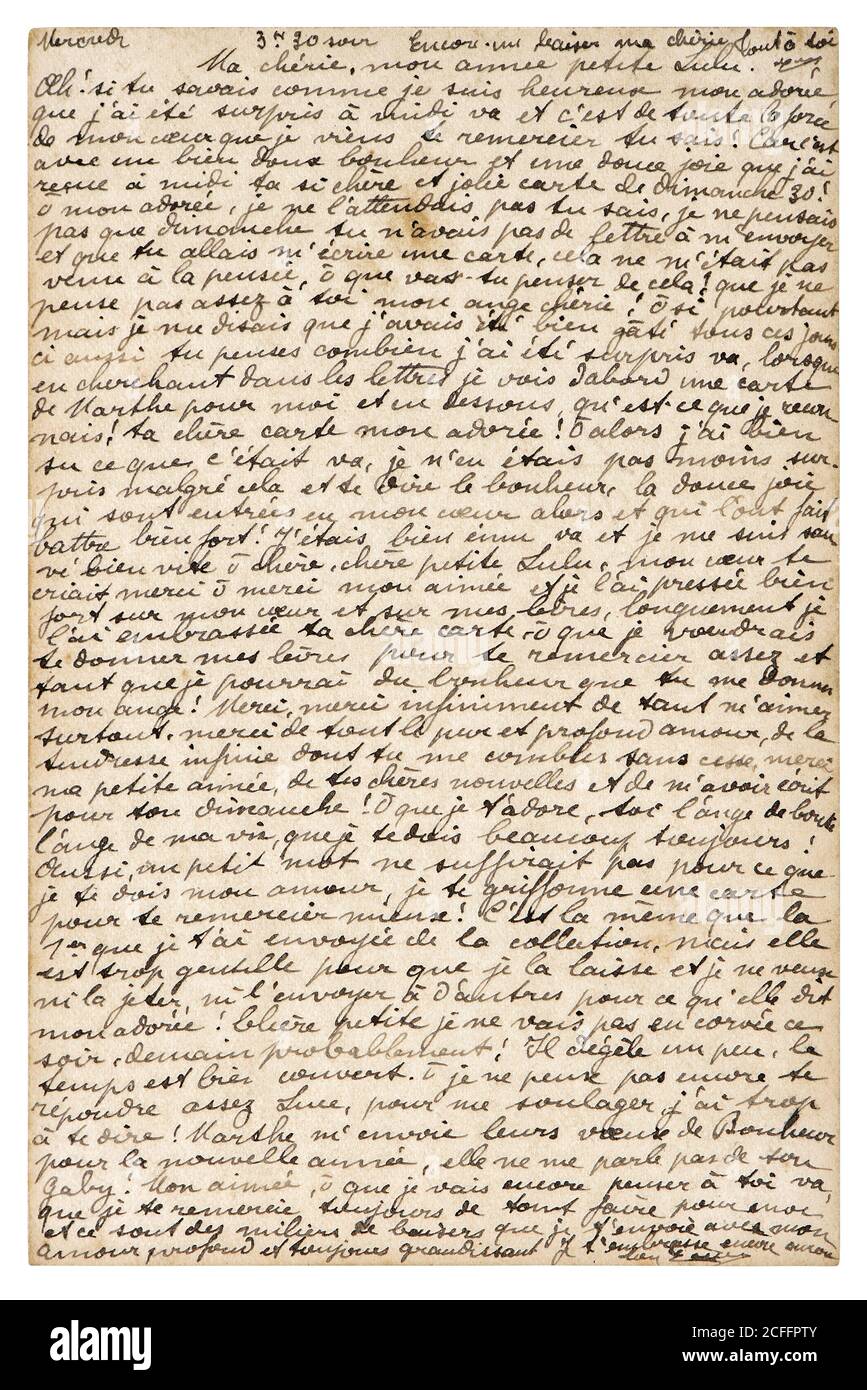 Mercredi 3h 30 soir Encore un baiser ma chérie tout à toi
Ma chérie, mon aimée petite Lulu.
Oh! si tu savais comme je suis heureux mon adorée
que j'ai été surpris à midi va et c'est de toute la force
de mon cœur que je viens te remercier tu sais! Car c'est
avec un bien doux bonheur et une douce joie que j'ai
reçue à midi ta si chère et jolie carte de dimanche 30!
Ō mon adorée, je ne l'attendais pas tu sais, je ne pensais
pas que dimanche tu n'avais pas de lettre à m'envoyer
et que tu allais m'écrire une carte, cela ne m'était pas
venu à la pensée, ō que vas-tu penser de cela! que je ne
pense pas assez à toi mon ange chérie! Ō si pourtant
mais je me disais que j'avais été bien gâté tous ces jours
ci aussi tu penses combien j'ai été surpris va, lorsque
en cherchant dans les lettres je vois d'abord une carte
de Marthe pour moi et en dessous, qu'est-ce que je recon
nais! ta chère carte mon adorée! Ō alors j'ai bien
su ce que c'était va, je n'en étais pas moins sur-
pris malgré cela et te dire le bonheur, la douce joie
qui sont entrées en mon cœur alors et qui l'ont fait
battre bien fort! J'étais bien ému va et je me suis sau
vé bien vite ō chère, chère petite Lulu, mon cœur te
criait merci ō merci mon aimée et je l'ai pressée bien
fort sur mon cœur et sur mes lèvres, longuement je
l'ai embrassée ta chère carte, ō que je voudrais
te donner mes lèvres pour te remercier assez et
tant que je pourrai du bonheur que tu me donnes
mon ange! Merci, merci infiniment de tant m'aimer
surtout, merci de tout le pur et profond amour, de la
tendresse infinie dont tu me combles sans cesse, merci
ma petite aimée, de tes chères nouvelles et de m'avoir écrit
pour ton dimanche! Ō que je t'adore, toi l'ange de bonté
l'ange de ma vie, que je te dois beaucoup toujours!
Aussi, un petit mot ne suffirait pas pour ce que
je te dois mon amour, je te griffonne une carte
pour te remercier mieux! C'est la même que la
1ère que je t'ai envoyée de la collation, mais elle
est trop gentille pour que je la laisse et je ne veux
ni la jeter, ni l'envoyer à d'autres pour ce qu'elle dit
mon adorée! Chère petite je ne vais pas en corvée ce
soir, demain probablement! Il dégèle un peu, le
temps est bien couvert. Ō je ne peux pas encore te
répondre assez Luce, pour me soulager, j'ai trop
à te dire! Marthe m'envoie leurs vœux de Bonheur
pour la nouvelle année, elle ne me parle pas de son
Gaby! Mon aimée, ō que je vais encore penser à toi va
que je te remercie toujours de tout faire pour moi
et ce sont des milliers de baisers que je t'envoie avec mon
amour, profond et toujours grandissant Je t'embrasse encore
alamy
Image ID: 2CFFPTY
www.alamy.com